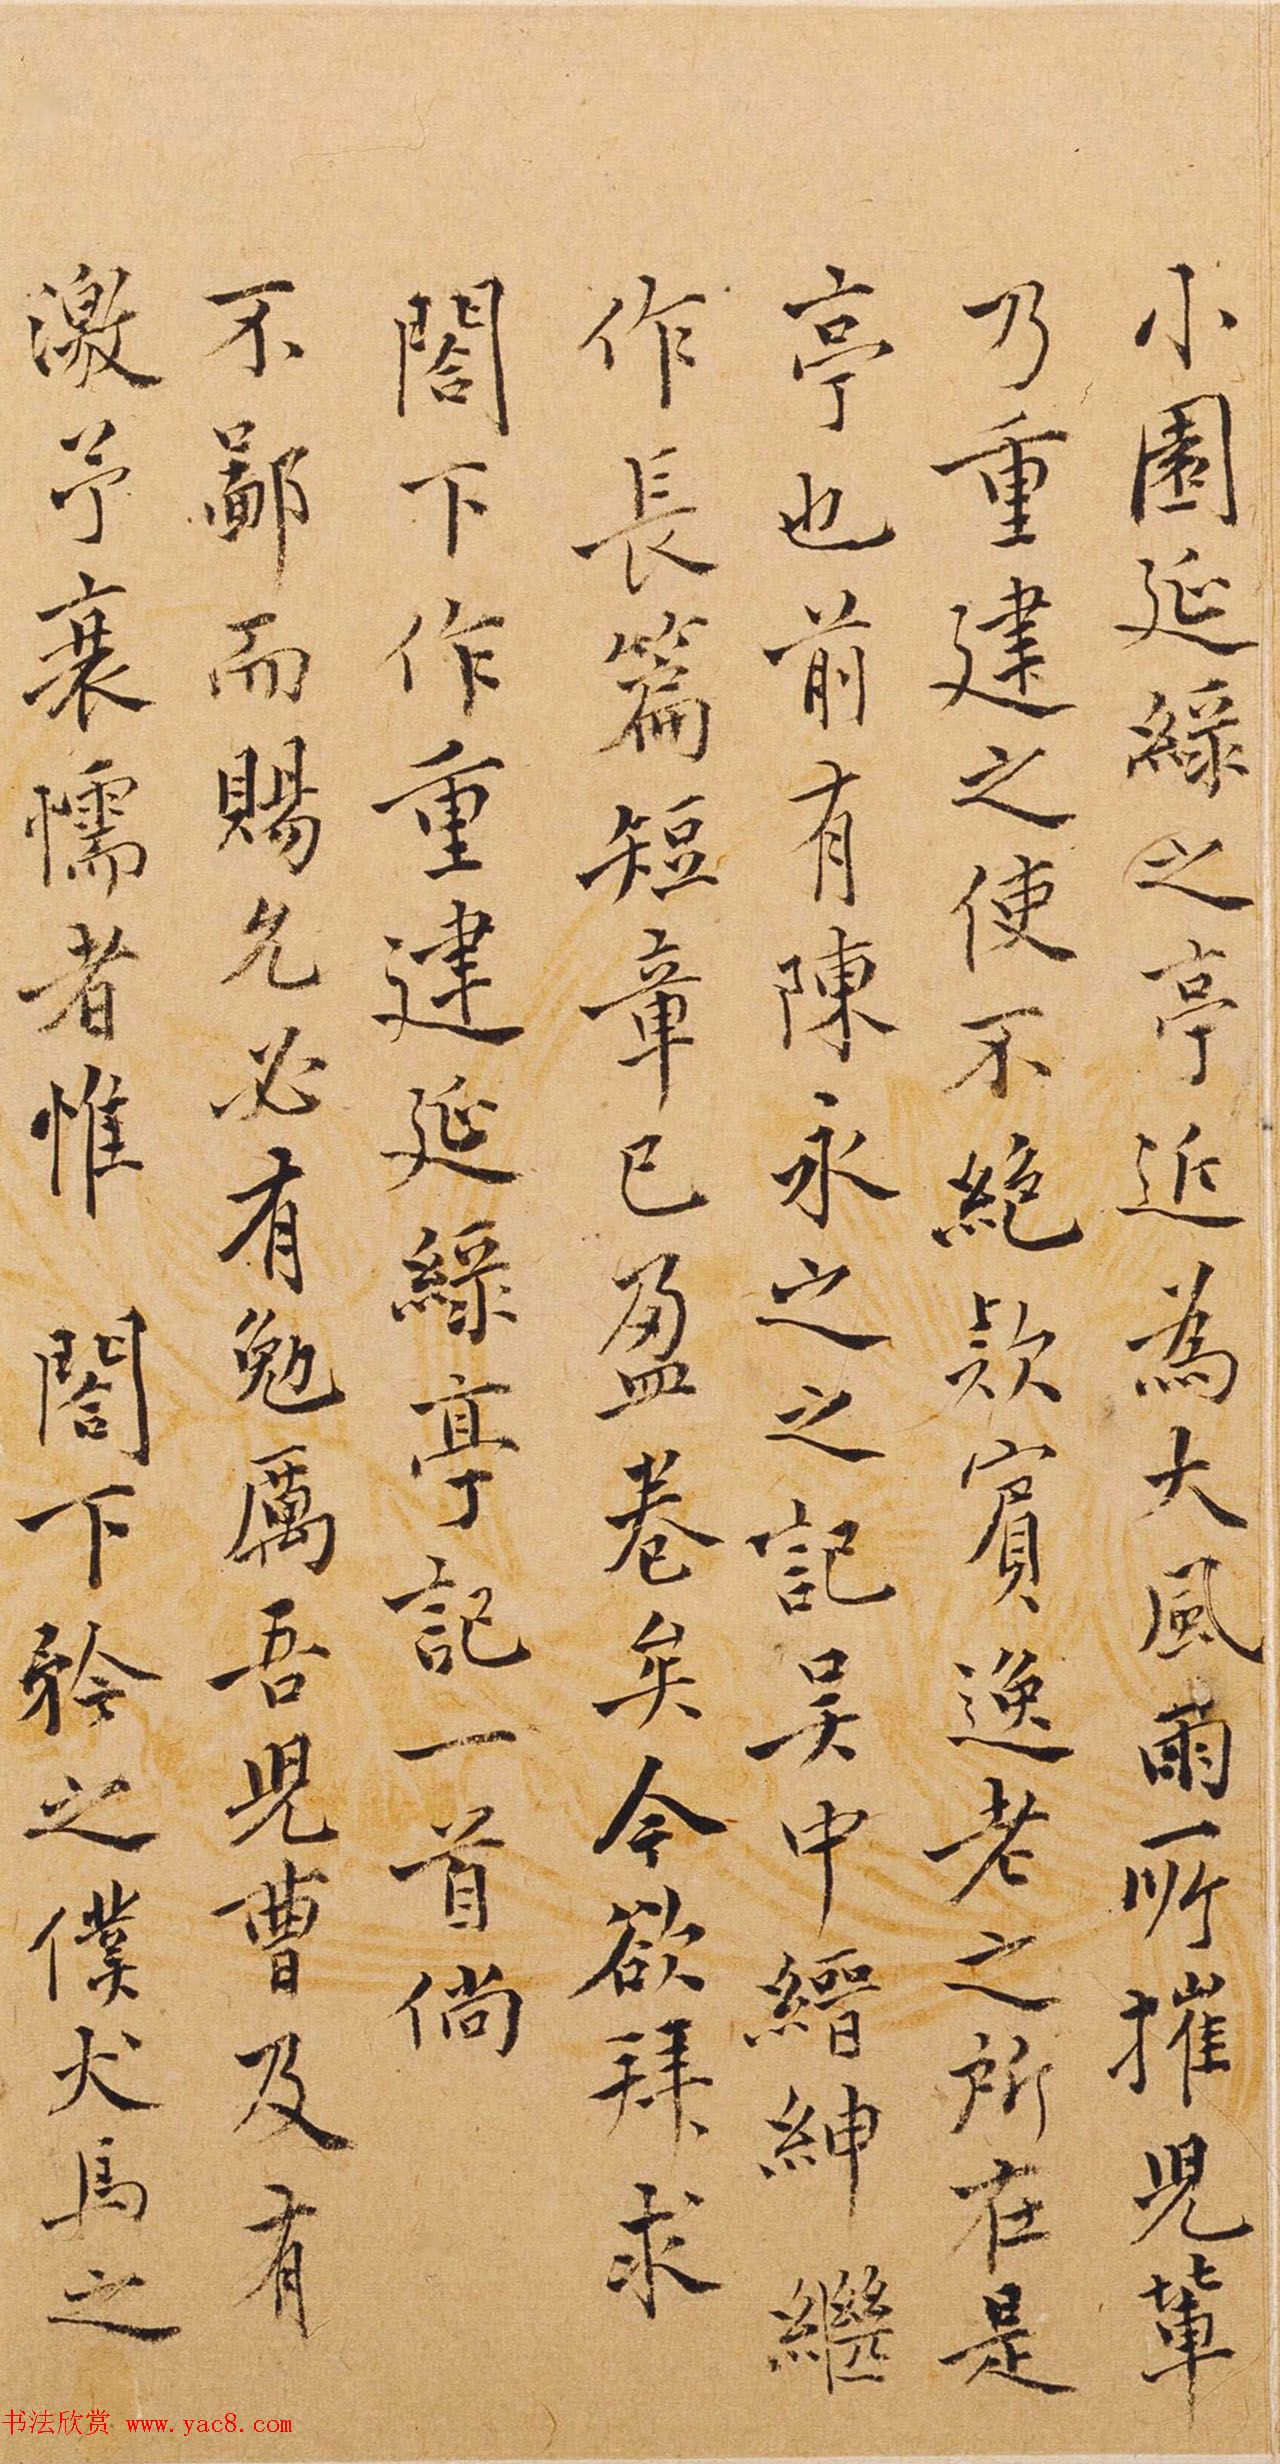 小園延緑之亭近為大風雨所摧児輩
乃重建之使不絶欵賓逸老之所在是
亭也前有陳永之之記吴中縉紳繼
作長篇短章已盈巻矣今欲拜求
閤下作重建延緑亭記一首倘
不鄙而賜允必有勉厲吾児曹及有
激予衰懦者惟 閤下矜之僕犬馬之
书法欣赏 www.yac8.com